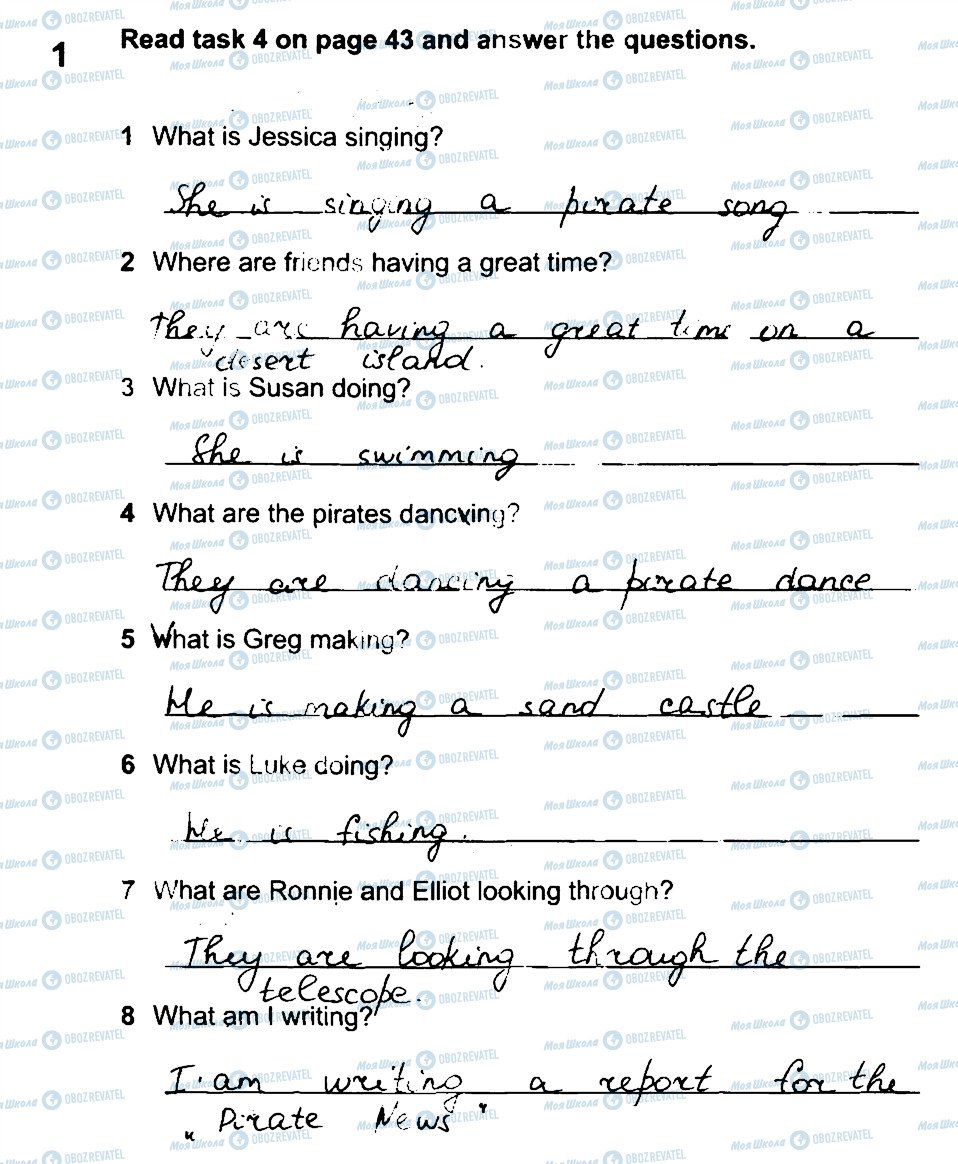 1
Read task 4 on page 43 and answer the questions.
1 What is Jessica singing?
She is singing a pirate song
2 Where are friends having a great time?
They are having a great time on a
desert island.
3 What is Susan doing?
She is swimming
4 What are the pirates dancxing?
They are dancing a pirate dance
5 What is Greg making?
He is making a sand castle
6 What is Luke doing?
He is fishing.
7 What are Ronnie and Elliot looking through?
They are looking through the
telescope.
8 What am I writing?
I am writing a report for the
„Pirate News"